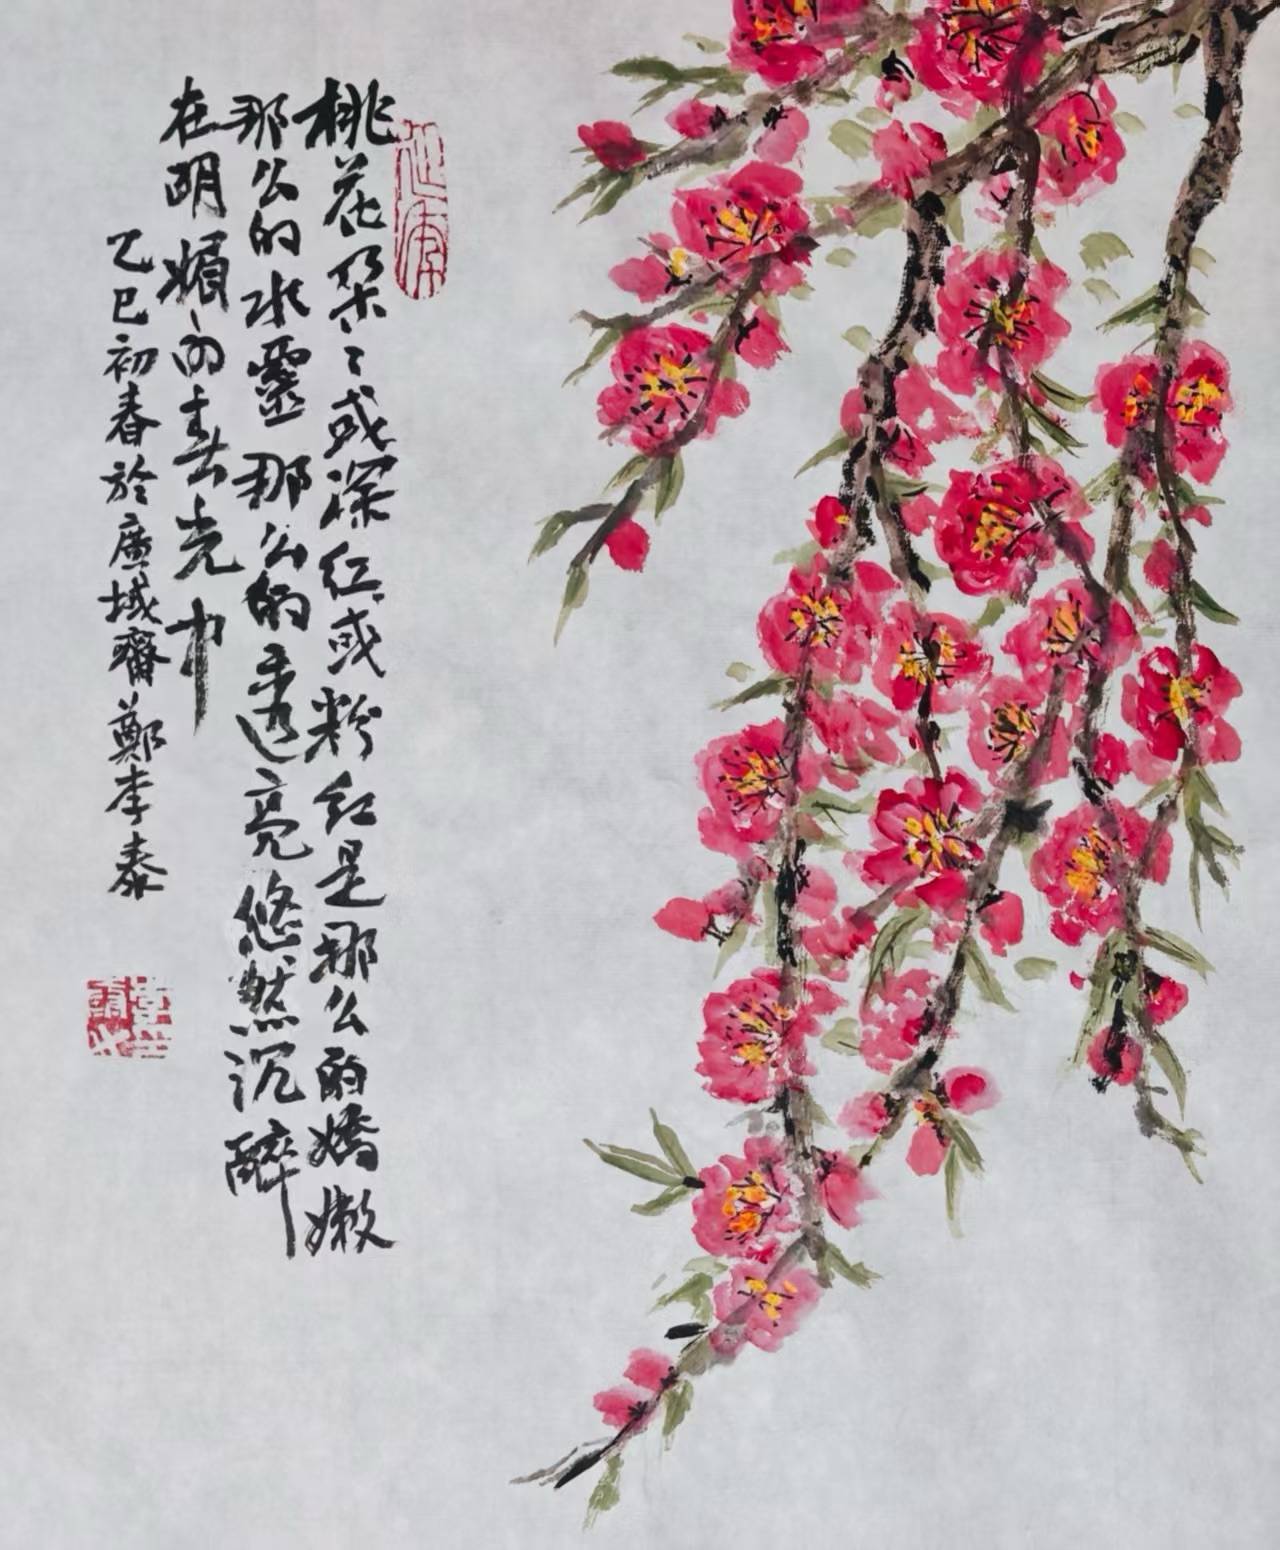 桃花朵々或深红或粉红是那么的娇嫩
那么的水靈那么的透亮悠然沉醉
在明媚的春光中
乙巳初春於廬城齋鄭李泰